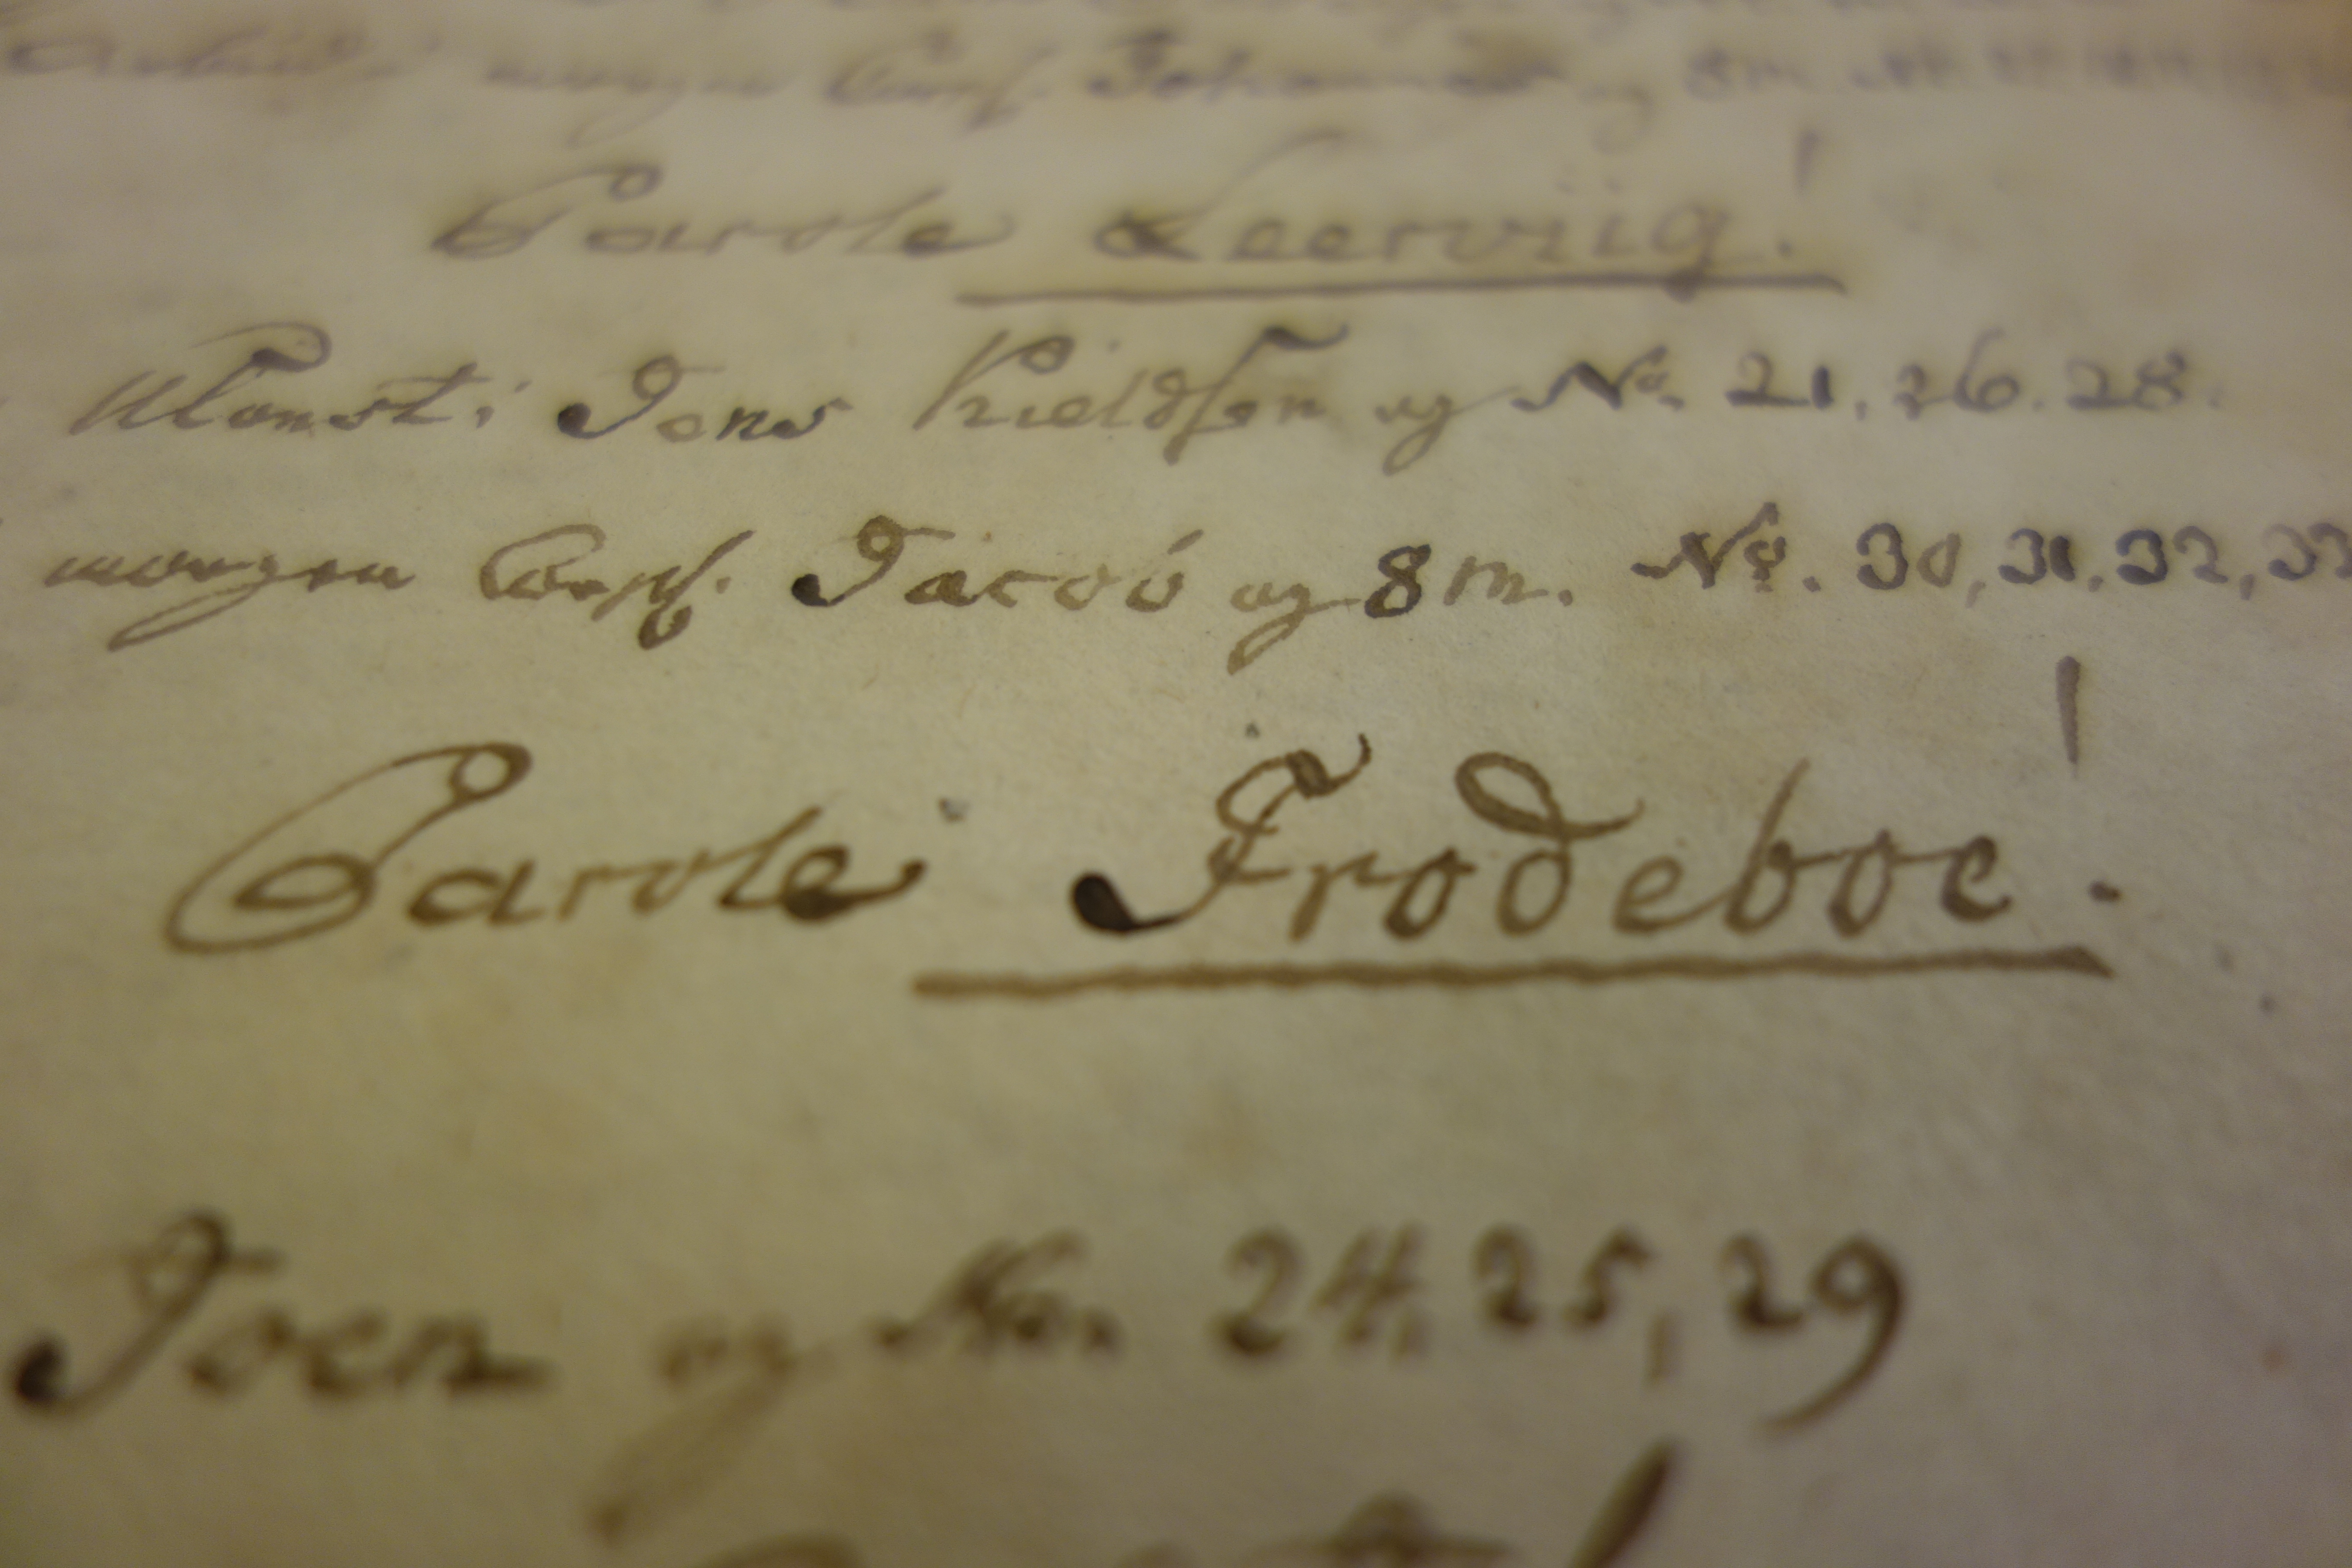 morgen Corpl. Johannes og 8 m. No
Parole Leerviig!
Jens Kieldsen og No. 21, 26. 28.
morgen Corpl. Jacob og 8 m. No. 30, 31, 32, 33
Parole Frodeboe!
Joen og No. 24, 25, 29